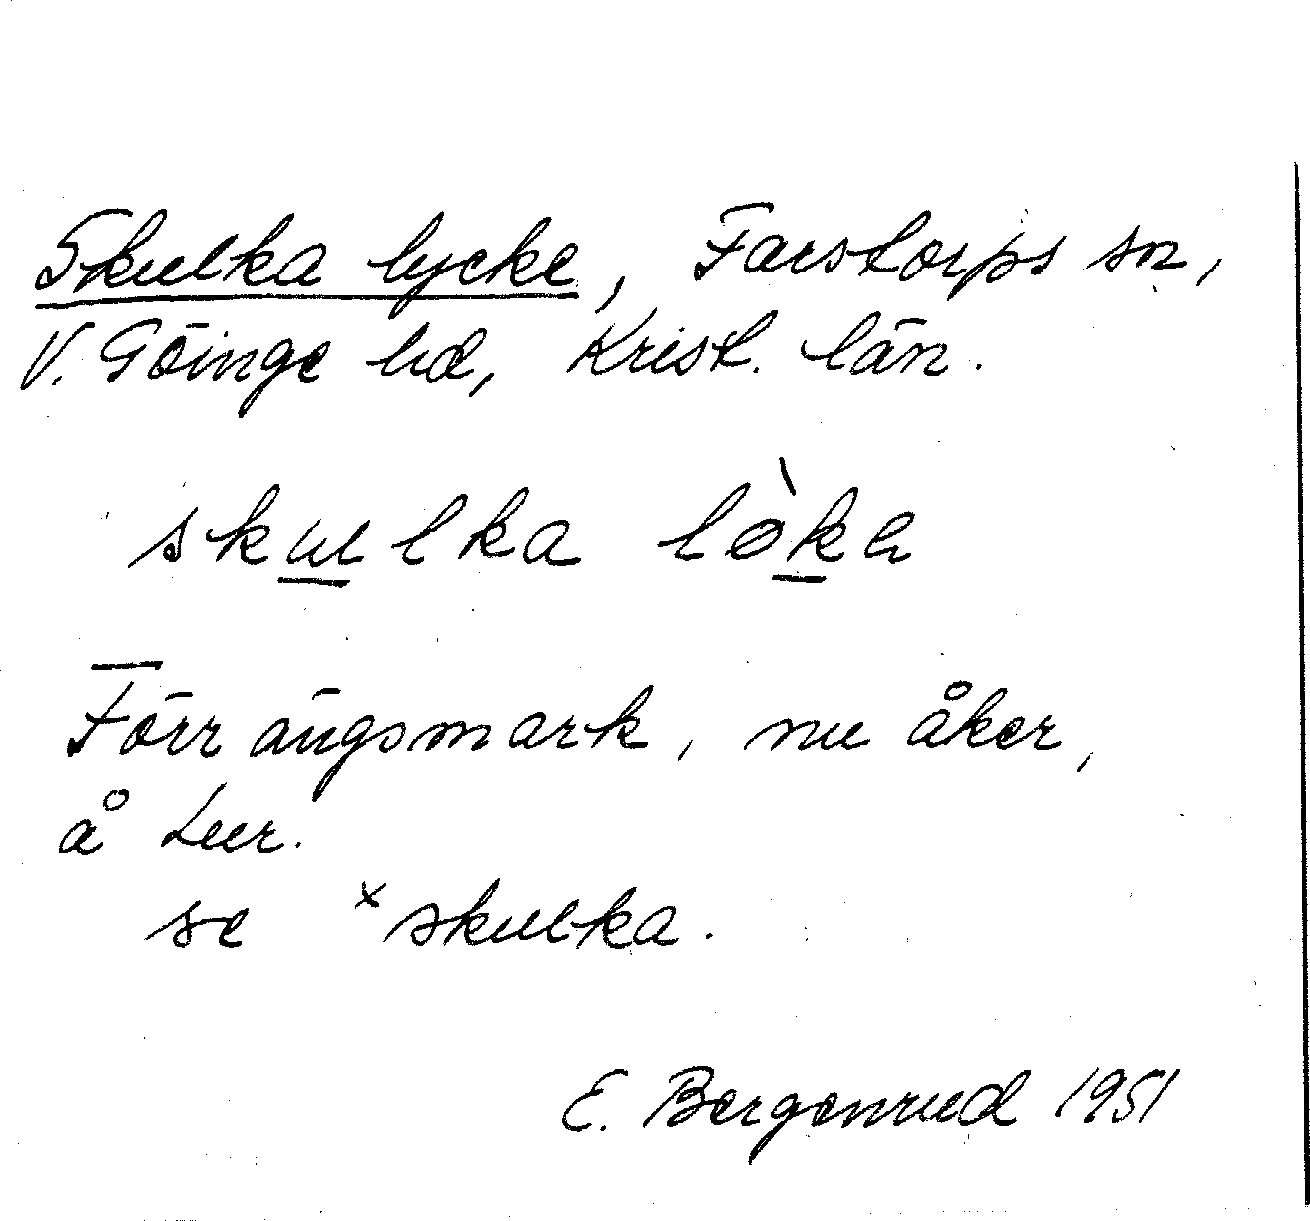 Skulka lycke, Farstorps sn,
V. Göinge hd, Krist. län.
skulka lø̀ka
Förr ängsmark, nu åker,
å Lur.
se ×skulka.
E. Bergenrud 1951